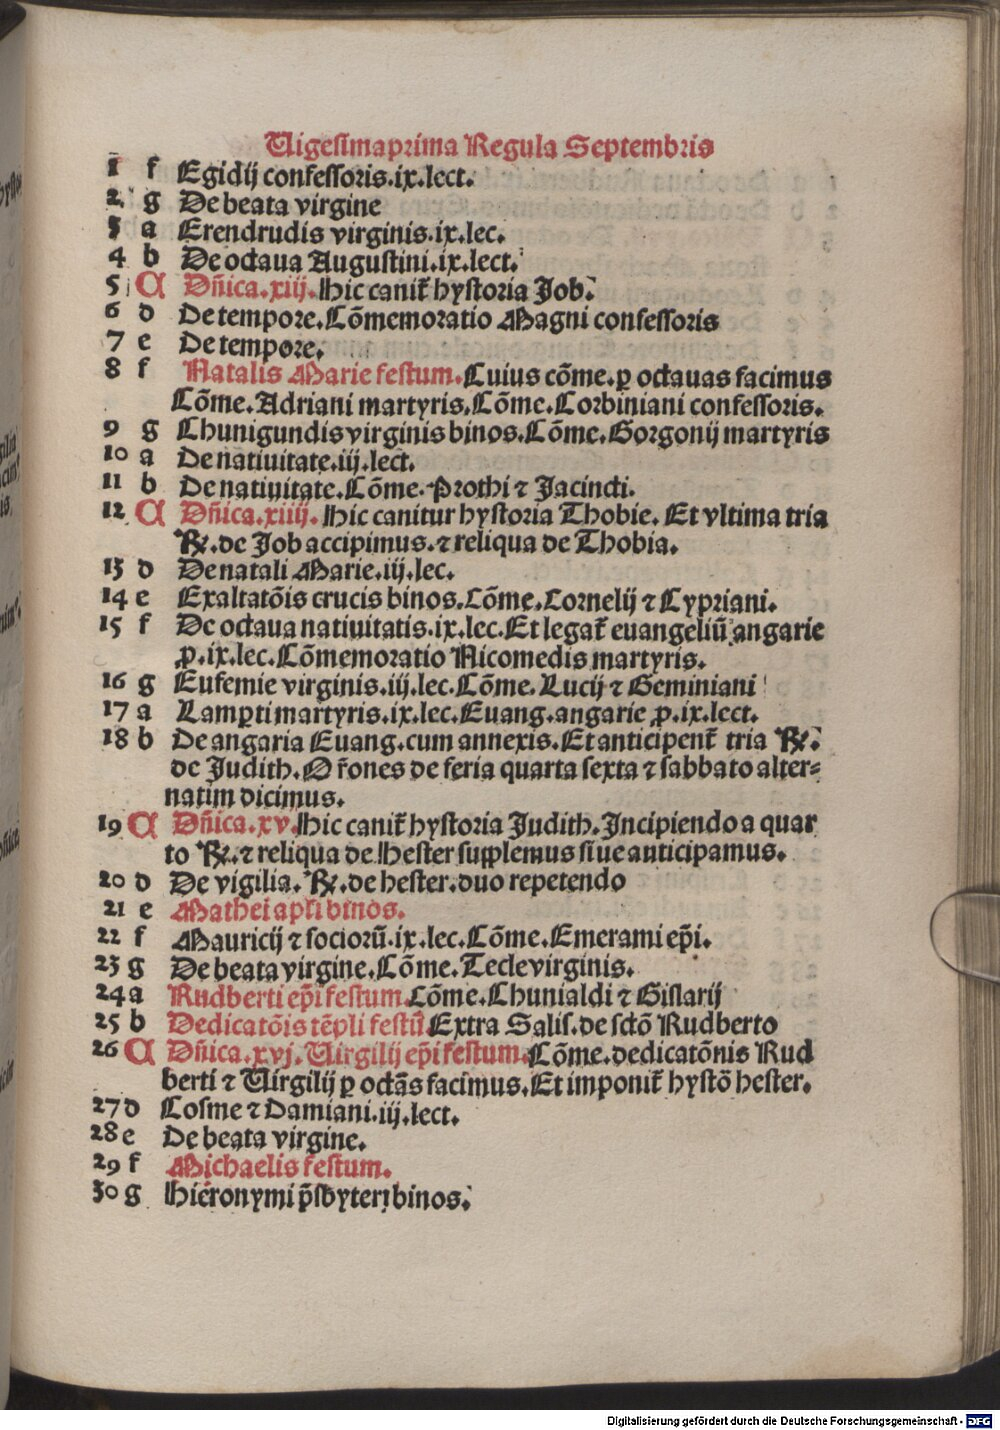 Uigesimaprima Regula Septembris
1 f Egidij confessoris.ix.lect.
2 g De beata virgine
3 a Erendrudis virginis.ix.lec.
4 b De octaua Augustini.ix.lect.
5 A Dñica.xiij.Hic canit᷑ hystoria Job.
6 d De tempore.Cõmemoratio Magni confessoris
7 e De tempore.
8 f Natalis Marie festum.Cuius cõme.ꝑ octauas facimus
Cõme.Adriani martyris.Cõme.Corbiniani confessoris.
9 g Chunigundis virginis binos.Cõme.Gorgonij martyris
10 a De natiuitate.iij.lect.
11 b De natiuitate.Cõme.Prothi ⁊ Jacincti.
12 A Dñica.xiiij.Hic canitur hystoria Thobie. Et vltima tria
℟.de Job accipimus.⁊ reliqua de Thobia.
13 d De natali Marie.iij.lec.
14 e Exaltatõis crucis binos.Cõme.Cornelij ⁊ Cypriani.
15 f De octaua natiuitatis.ix.lec.Et legat᷑ euangeliũ angarie
ꝓ.ix.lec.Cõmemoratio Nicomedis martyris.
16 g Eufemie virginis.iij.lec.Cõme.Lucij ⁊ Geminiani
17 a Lamꝑti martyris.ix.lec.Euang.angarie ꝓ.ix.lect.
18 b De angaria Euang.cum annexis.Et anticipent᷑ tria ℟.
de Judith.Or̃ones de feria quarta sexta ⁊ sabbato alter⸗
natim dicimus.
19 A Dñica.xv.Hic canit᷑ hystoria Judith.Incipiendo a quar
to ℟.⁊ reliqua de Hester supplemus siue anticipamus.
20 d De vigilia.℟.de hester.duo repetendo
21 e Mathei apli binos.
22 f Mauricij ⁊ sociorũ.ix.lec.Cõme.Emerami ep̃i.
23 g De beata virgine.Cõme.Tecle virginis.
24 a Rudberti ep̃i festum.Cõme.Chunialdi ⁊ Gislarij
25 b Dedicatõis tẽpli festũ.Extra Salis.de sctõ Rudberto
26 A Dñica.xvj.Uirgilij ep̃i festum.Cõme.dedicatõnis Rud
berti ⁊ Uirgilij ꝑ octãs facimus.Et imponit᷑ hystõ hester.
27 d Cosme ⁊ Damiani.iij.lect.
28 e De beata virgine.
29 f Michaelis festum.
30 g Hieronymi p̃sbyteri binos.
Digitalisierung gefördert durch die Deutsche Forschungsgemeinschaft - DFG